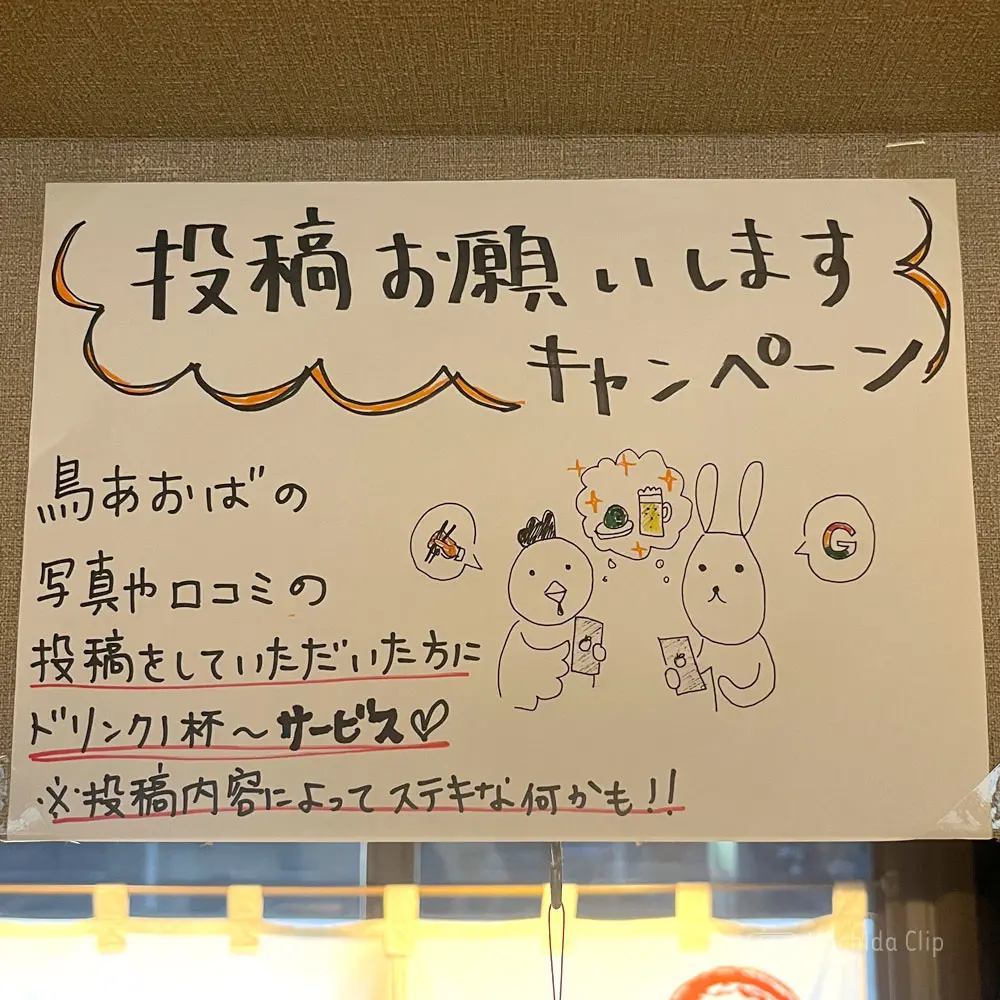 投稿お願いします
キャンペーン
鳥あおばの
写真や口コミの
投稿をしていただいた方に
ドリンク1杯〜サービス♡
※投稿内容によってステキな何かも!!
G
Clip